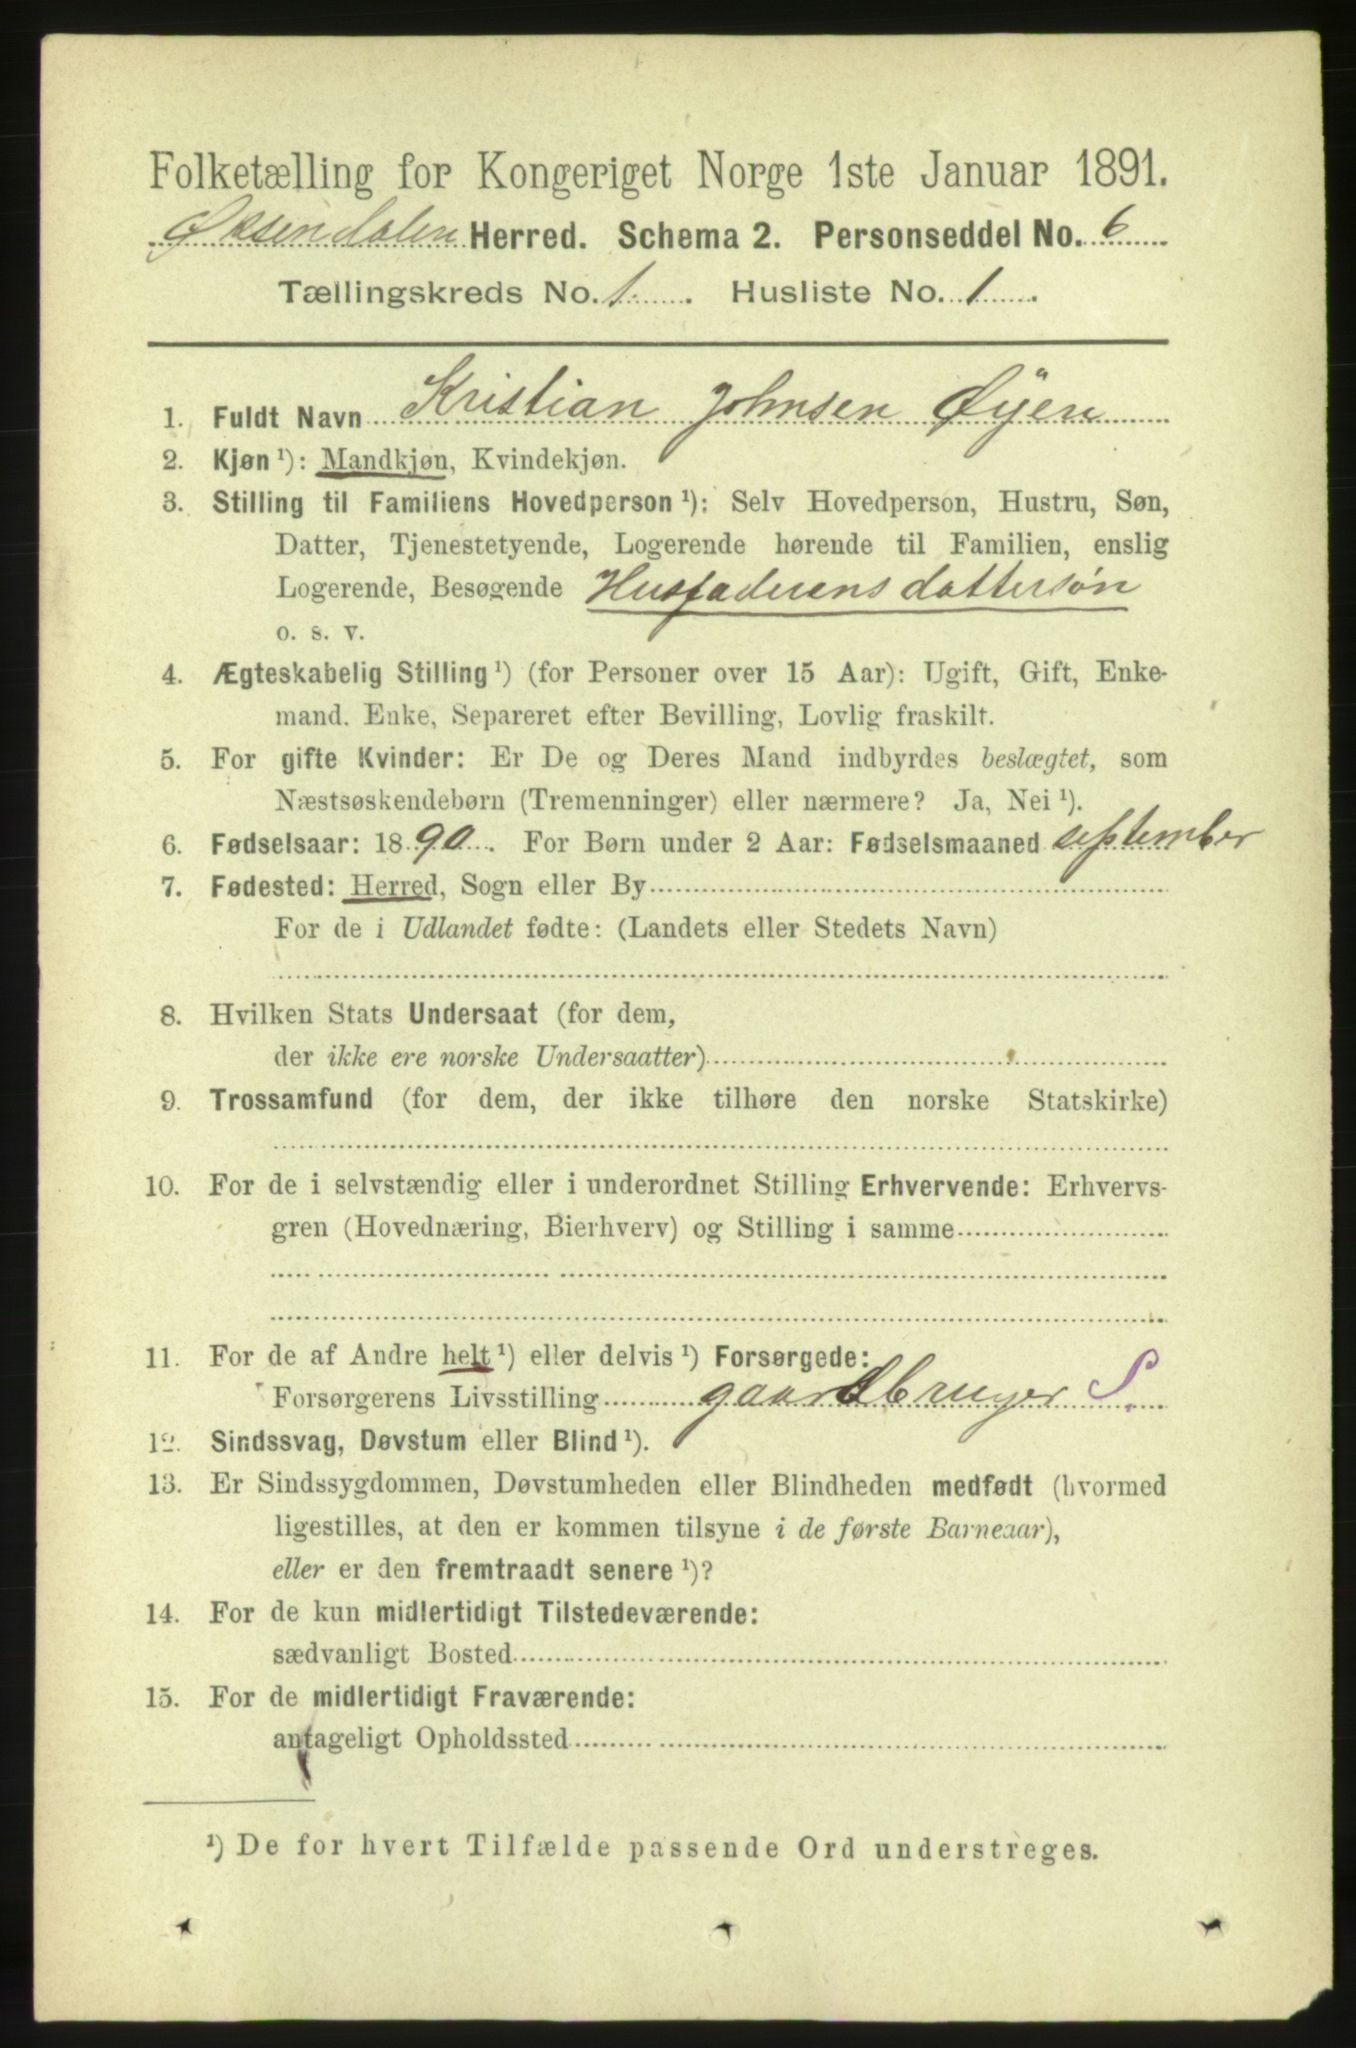 Folketælling for Kongeriget Norge 1ste Januar 1891.
Øksendalen Herred. Schema 2. Personseddel No. 6
Tællingskreds No. 1. Husliste No. 1.
1. Fuldt Navn Kristian Johnsen Øyen
2. Kjøn ¹): Mandkjøn, Kvindekjøn.
3. Stilling til Familiens Hovedperson ¹): Selv Hovedperson, Hustru, Søn,
Datter, Tjenestetyende, Logerende hørende til Familien, enslig
Logerende, Besøgende Husfaderens dattersøn
o. s. v.
4. Ægteskabelig Stilling ¹) (for Personer over 15 Aar): Ugift, Gift, Enke-
mand. Enke, Separeret efter Bevilling, Lovlig fraskilt.
5. For gifte Kvinder: Er De og Deres Mand indbyrdes beslægtet, som
Næstsøskendebørn (Tremenninger) eller nærmere? Ja, Nei ¹).
6. Fødselsaar: 1890. For Børn under 2 Aar: Fødselsmaaned september
7. Fødested: Herred, Sogn eller By
For de i Udlandet fødte: (Landets eller Stedets Navn)
8. Hvilken Stats Undersaat (for dem,
der ikke ere norske Undersaatter)
9. Trossamfund (for dem, der ikke tilhøre den norske Statskirke)
10. For de i selvstændig eller i underordnet Stilling Erhvervende: Erhvervs-
gren (Hovednæring, Bierhverv) og Stilling i samme
11. For de af Andre helt ¹) eller delvis ¹) Forsørgede:
Forsørgerens Livsstilling gaardbruger S.
12. Sindssvag, Døvstum eller Blind ¹).
13. Er Sindssygdommen, Døvstumheden eller Blindheden medfødt (hvormed
ligestilles, at den er kommen tilsyne i de første Barneaar),
eller er den fremtraadt senere ¹)?
14. For de kun midlertidigt Tilstedeværende:
sædvanligt Bosted
15. For de midlertidigt Fraværende:
antageligt Opholdssted
¹) De for hvert Tilfælde passende Ord understreges.